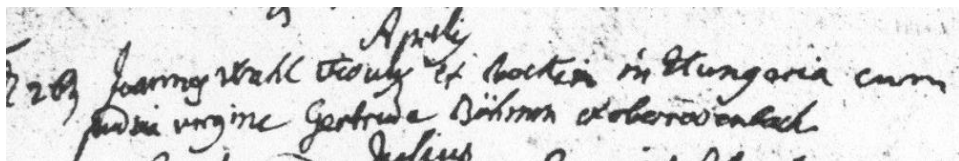 Aprilis
28 Joannes Wahl viduus ex bocksin in Hungaria cum
pudica virgine Gertrude Böhmin ex oberrodenbach
Julius